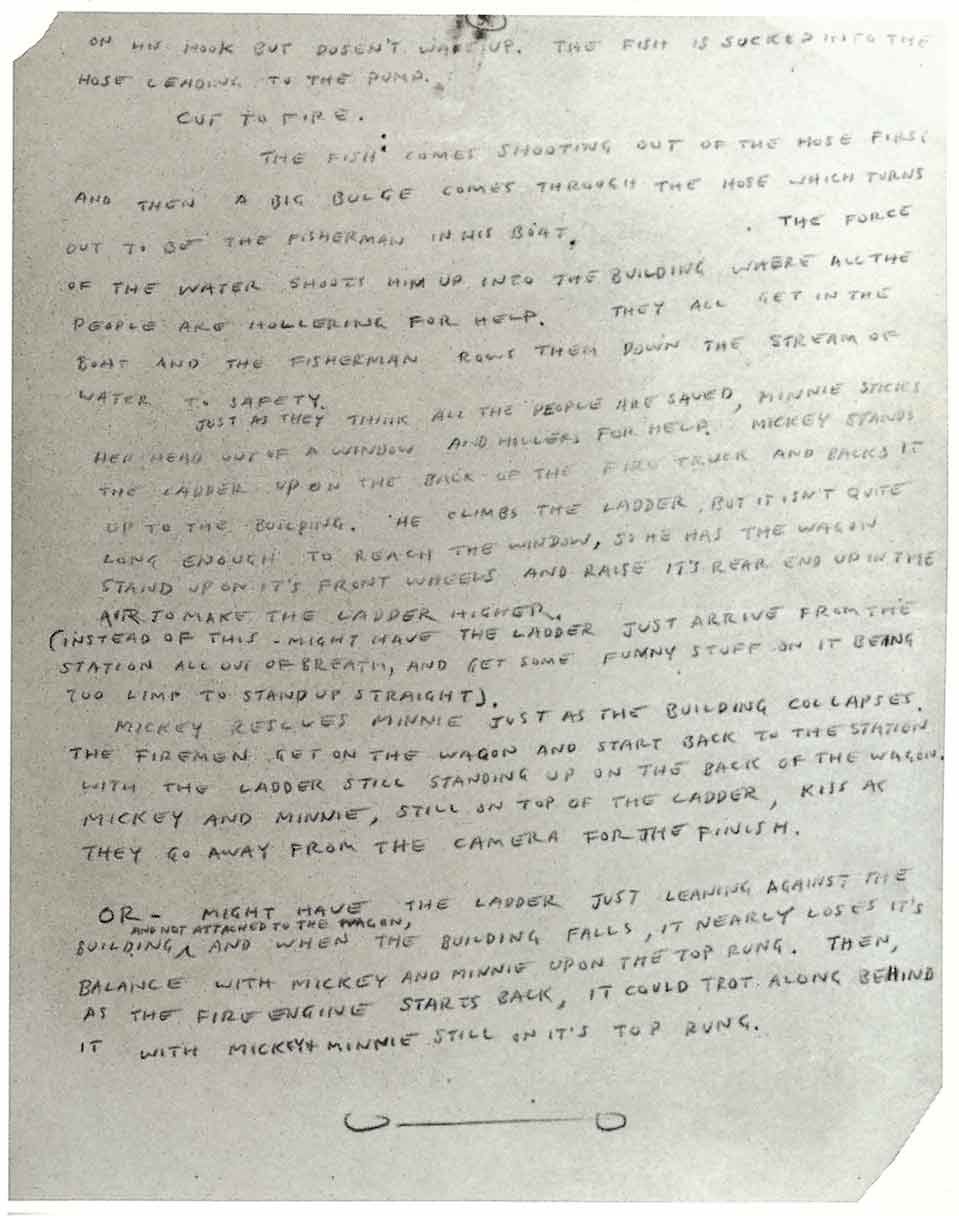 ON HIS HOOK BUT DOSEN'T WAKE UP. THE FISH IS SUCKED INTO THE
HOSE LEADING TO THE PUMP.
CUT TO FIRE.
THE FISH COMES SHOOTING OUT OF THE HOSE FIRST
AND THEN A BIG BULGE COMES THROUGH THE HOSE WHICH TURNS
OUT TO BE THE FISHERMAN IN HIS BOAT. THE FORCE
OF THE WATER SHOOTS HIM UP INTO THE BUILDING WHERE ALL THE
PEOPLE ARE HOLLERING FOR HELP. THEY ALL GET IN THE
BOAT AND THE FISHERMAN ROWS THEM DOWN THE STREAM OF
WATER TO SAFETY.
JUST AS THEY THINK ALL THE PEOPLE ARE SAVED, MINNIE STICKS
HER HEAD OUT OF A WINDOW AND HOLLERS FOR HELP. MICKEY STANDS
THE LADDER UP ON THE BACK OF THE FIRE TRUCK AND BACKS IT
UP TO THE BUILDING. HE CLIMBS THE LADDER, BUT IT ISN'T QUITE
LONG ENOUGH TO REACH THE WINDOW, SO HE HAS THE WAGON
STAND UP ON IT'S FRONT WHEELS AND RAISE IT'S REAR END UP IN THE
AIR TO MAKE THE LADDER HIGHER.
(INSTEAD OF THIS - MIGHT HAVE THE LADDER JUST ARRIVE FROM THE
STATION ALL OUT OF BREATH, AND GET SOME FUNNY STUFF ON IT BEING
TOO LIMP TO STAND UP STRAIGHT).
MICKEY RESCUES MINNIE JUST AS THE BUILDING COLLAPSES.
THE FIREMEN GET ON THE WAGON AND START BACK TO THE STATION
WITH THE LADDER STILL STANDING UP ON THE BACK OF THE WAGON.
MICKEY AND MINNIE, STILL ON TOP OF THE LADDER, KISS AS
THEY GO AWAY FROM THE CAMERA FOR THE FINISH.
OR - MIGHT HAVE THE LADDER JUST LEANING AGAINST THE
AND NOT ATTACHED TO THE WAGON,
BUILDING ^ AND WHEN THE BUILDING FALLS, IT NEARLY LOSES IT'S
BALANCE WITH MICKEY AND MINNIE UPON THE TOP RUNG. THEN,
AS THE FIRE ENGINE STARTS BACK, IT COULD TROT ALONG BEHIND
IT WITH MICKEY & MINNIE STILL ON IT'S TOP RUNG.